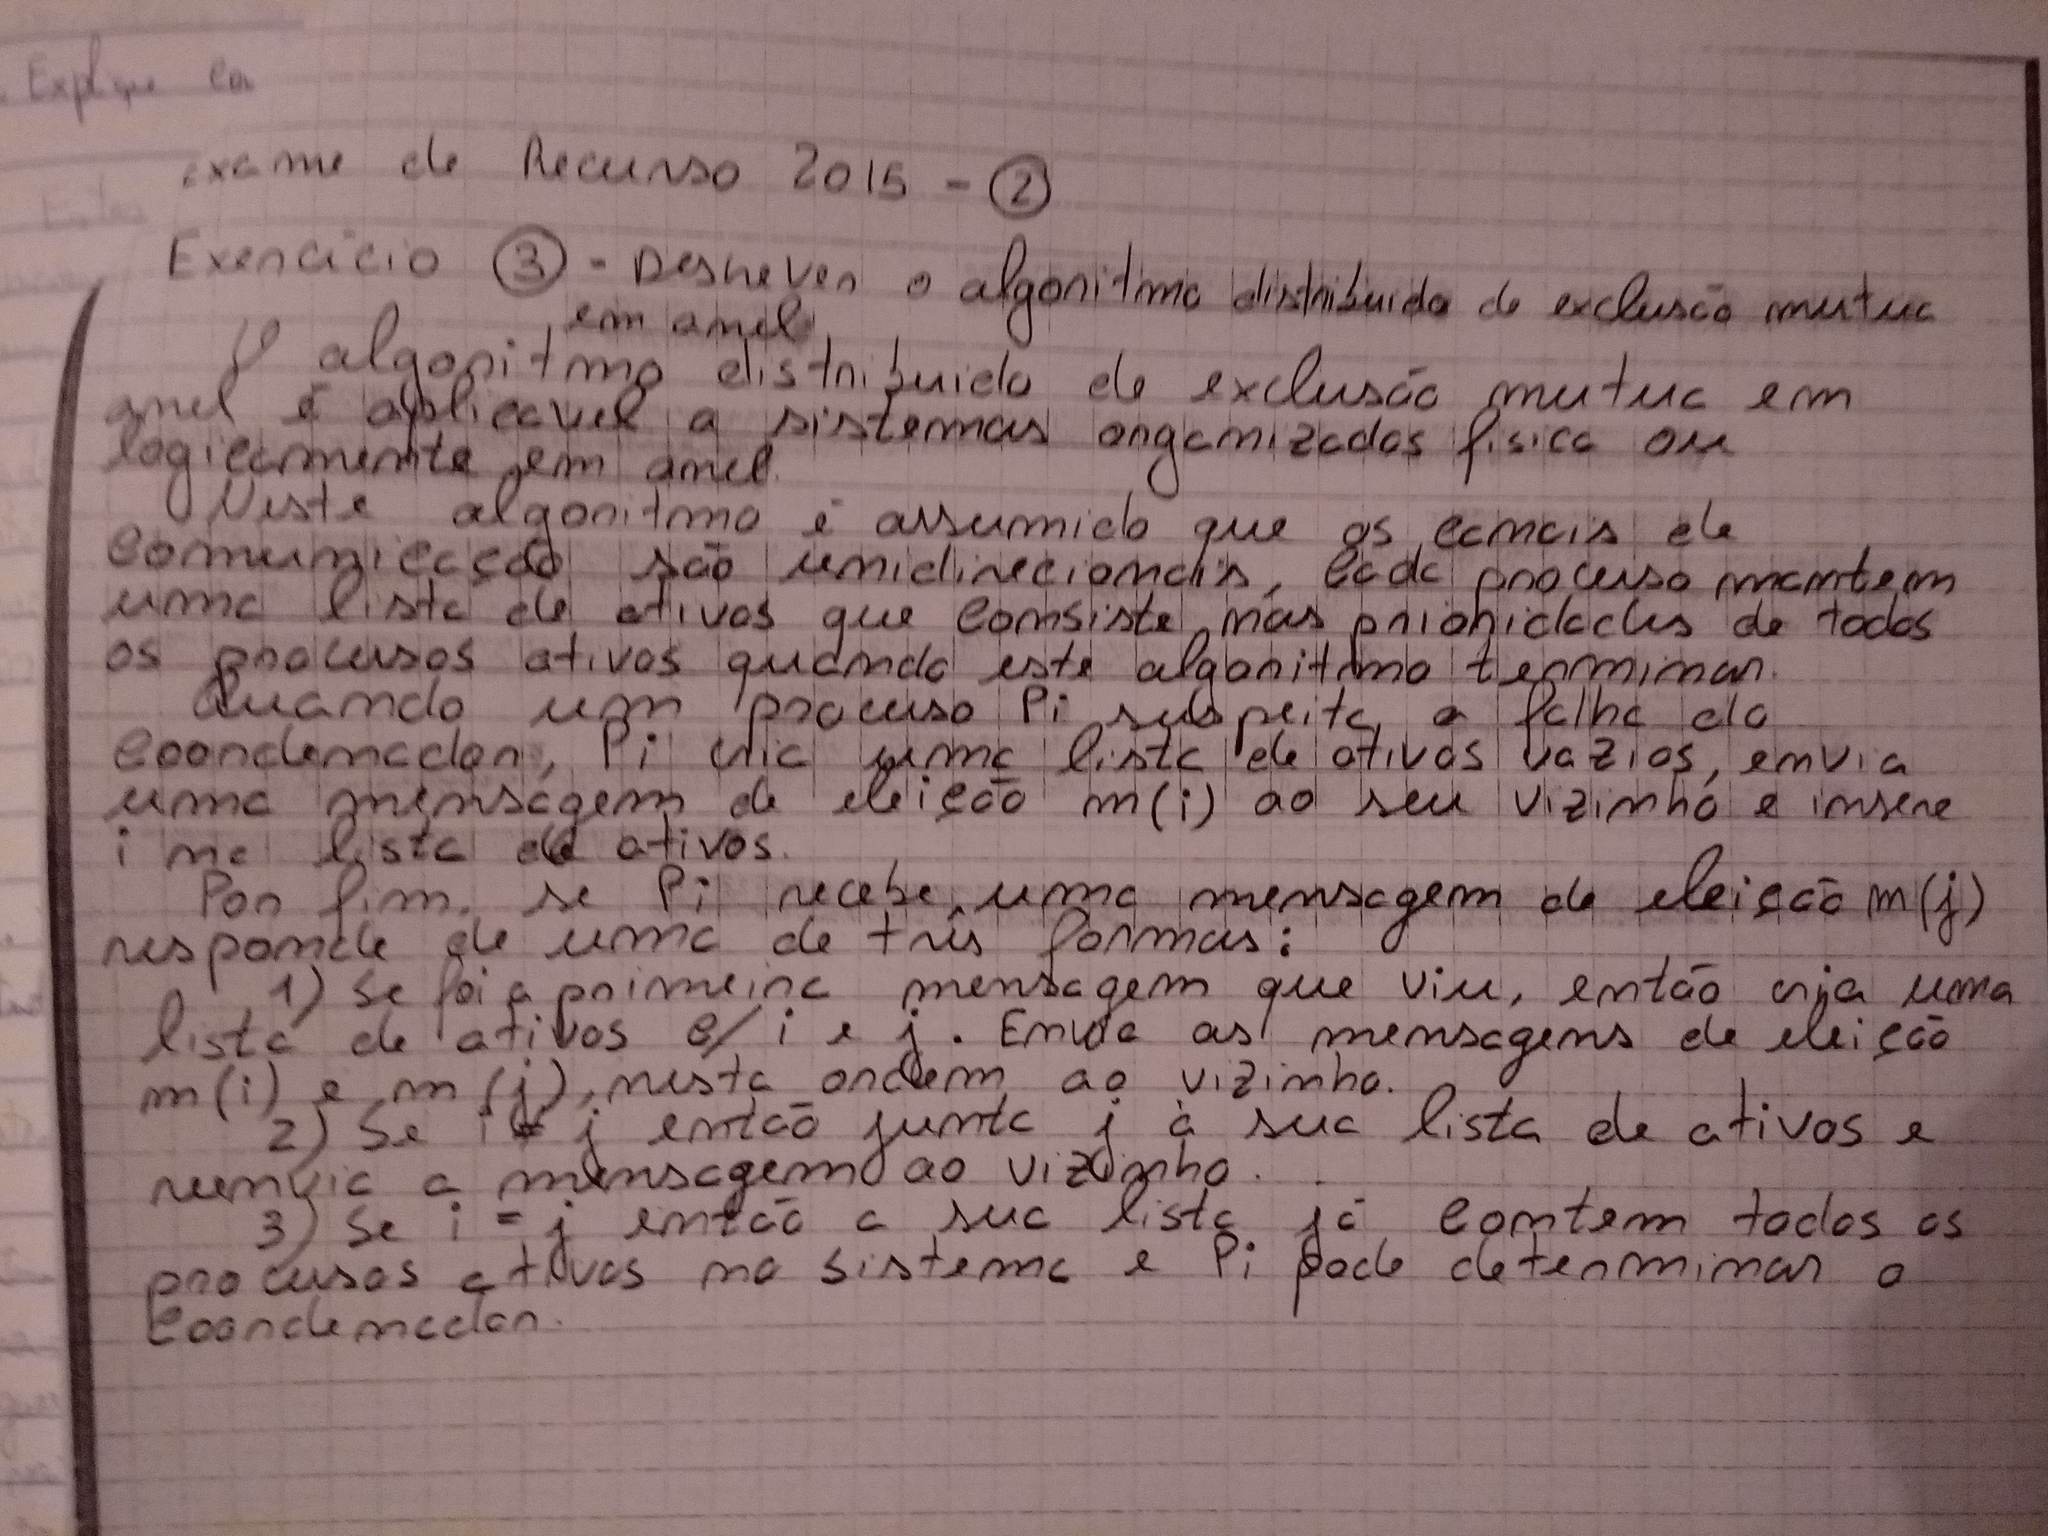 Explique
Exame de Recurso 2015 - 2
Exercício 3 - Descrever o algoritmo distribuido de exclusão mutua
em anel
O algoritmo distribuido de exclusão mutua em
anel é aplicavel a sistemas organizados fisica ou
logicamente em anel.
Neste algoritmo é assumido que os canais de
comunicação são unidirecionais, cada processo mantem
uma lista de ativos que consiste nas prioridades de todos
os processos ativos quando este algoritmo terminar.
Quando um processo Pi suspeita a falha do
coordenador, Pi cria uma lista de ativos vazios, envia
uma mensagem de eleição m(i) ao seu vizinho e insere
i na lista de ativos.
Por fim, se Pi recebe uma mensagem de eleição m(j)
responde de uma de três formas:
1) Se foi a primeira mensagem que viu, então cria uma
lista de ativos c/ i e j. Envia as mensagens de eleição
m(i) e m(j), nesta ordem ao vizinho.
2) Se i ≠ j então junta j à sua lista de ativos e
reenvia a mensagem ao vizinho.
3) Se i = j então a sua lista já contem todos os
processos ativos no sistema e Pi pode determinar o
coordenador.